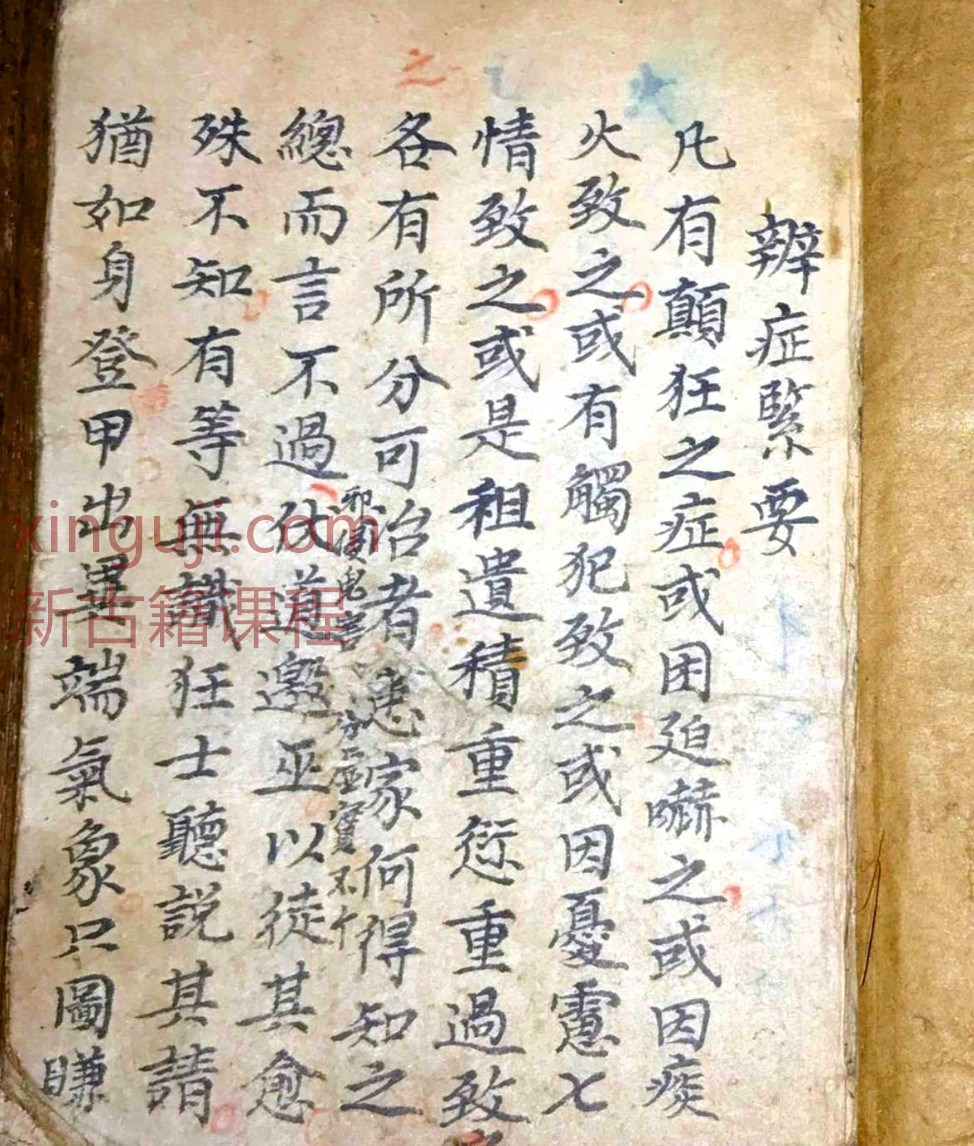 辨症緊要
凡有顛狂之症或困廹嚇之或因痰
火致之或有觸犯致之或因憂慮七
情致之或是祖遺積重愆重過致
之
各有所分可治者患家何得知之
總而言不過伏道邀巫以徒其愈
殊不知有等無識狂士聽説其請
猶如身登甲出異端氣象只圖賺
之
xinguji.com
新古籍课程